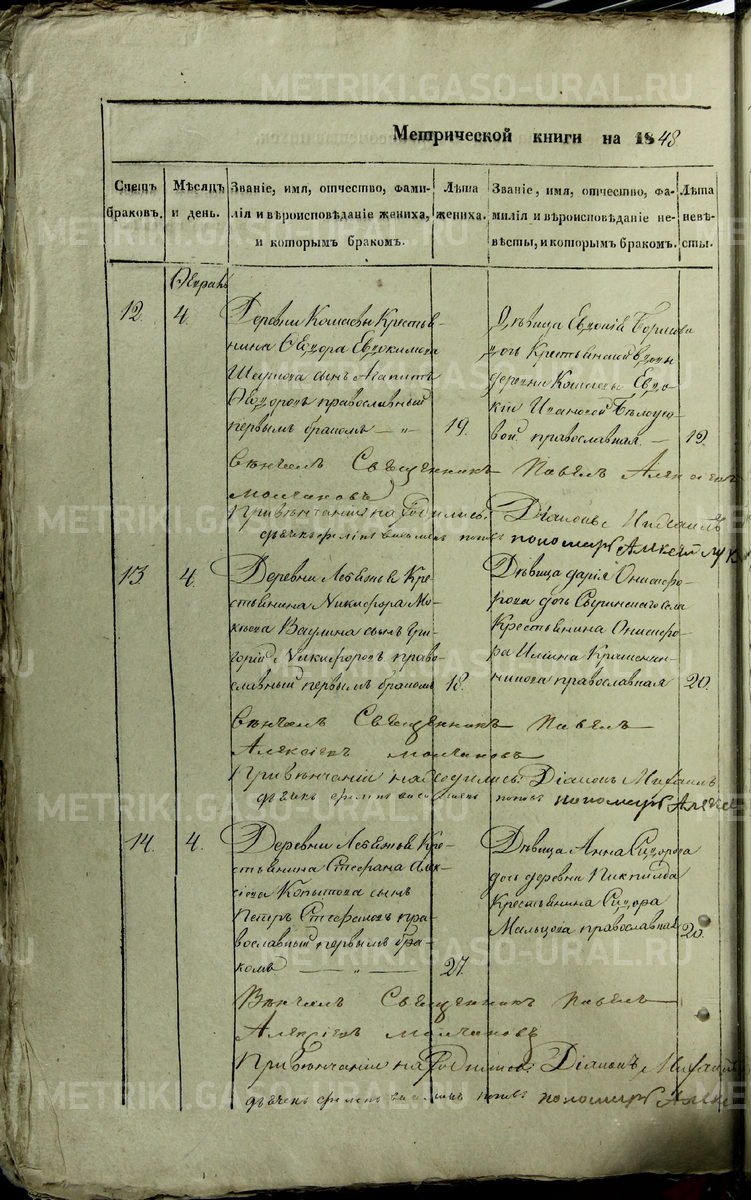 METRIKI.GASO-URAL.RU
Метрической книги на 1848
Счетъ браковъ.
Мѣсяцъ и день.
Званіе, имя, отчество, фами-
лія и вѣроисповѣданіе жениха,
и которымъ бракомъ.
Лѣта жениха.
Званіе, имя, отчество, фа-
милія и вѣроисповѣданіе не-
вѣсты, и которымъ бракомъ.
Лѣта невѣ-
сты.
12.
4.
Деревни Кошаевы Кресть-
нина Ѳедора Евдокимова
сынъ Агапитъ
Ѳедоровъ православный
первымъ бракомъ — „
19.
Дѣвица Евдокія Борисова
дочь Крестьянской вдовы
деревни Кошаевы Евдо-
кіи Ивановой Бѣлоусо-
вой православная. —
19.
Вѣнчалъ Священникъ Павелъ Алексіевъ
Молчановъ
При вѣнчаніи находились: Діаконъ Михаилъ
пономарь Алексей
13
4.
Деревни Лебяжьей Кре-
стьянина Никифора Мо-
кѣева Ваулина сынъ Гри-
горій Никифоровъ право-
славный первымъ бракомъ
18.
Дѣвица Дарія Онисифо-
рова дочь села
Крестьянина Онисифо-
ра Ильина Крашенин-
никова православная
20.
Вѣнчалъ Священникъ Павелъ
Алексіевъ Молчановъ
При вѣнчаніи находились: Діаконъ Михаилъ
пономарь Алексе
14.
4.
Деревни Лебяжьей Кре-
стьянина Стефана Алек-
сіева Копытова сынъ
Петръ Стефановъ пра-
вославный первымъ бра-
комъ — „ —
27.
Дѣвица Анна Сидорова
дочь деревни
Крестьянина Сидора
Мальцова православная
20.
Вѣнчалъ Священникъ Павелъ
Алексіевъ Молчановъ
При вѣнчаніи находились: Діаконъ Михаилъ
пономарь Алексе